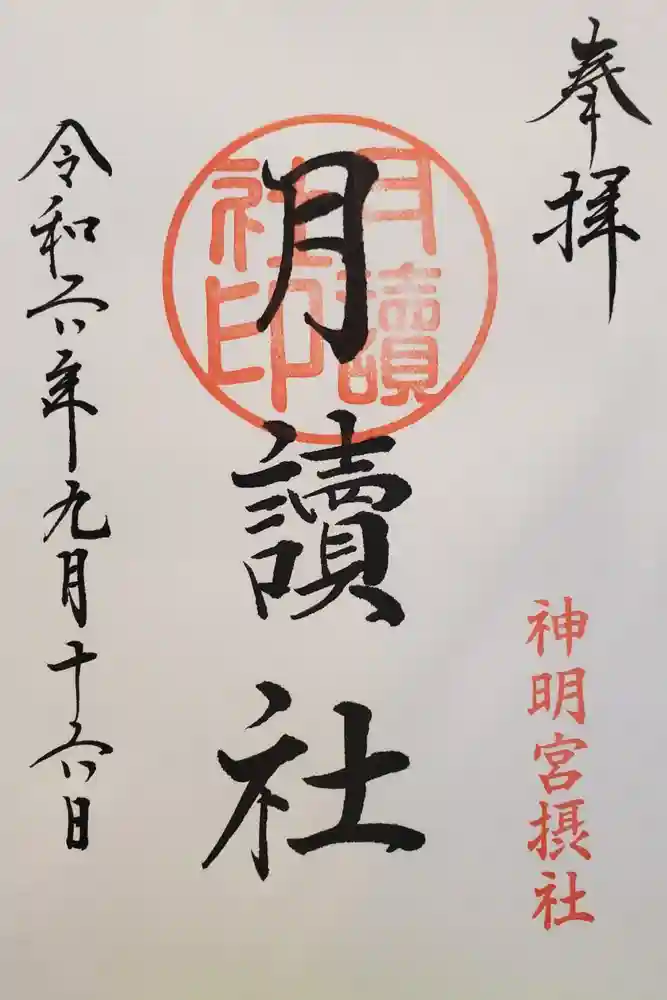 奉拝
神明宮摂社
月讀社印
月讀社
令和六年九月十六日